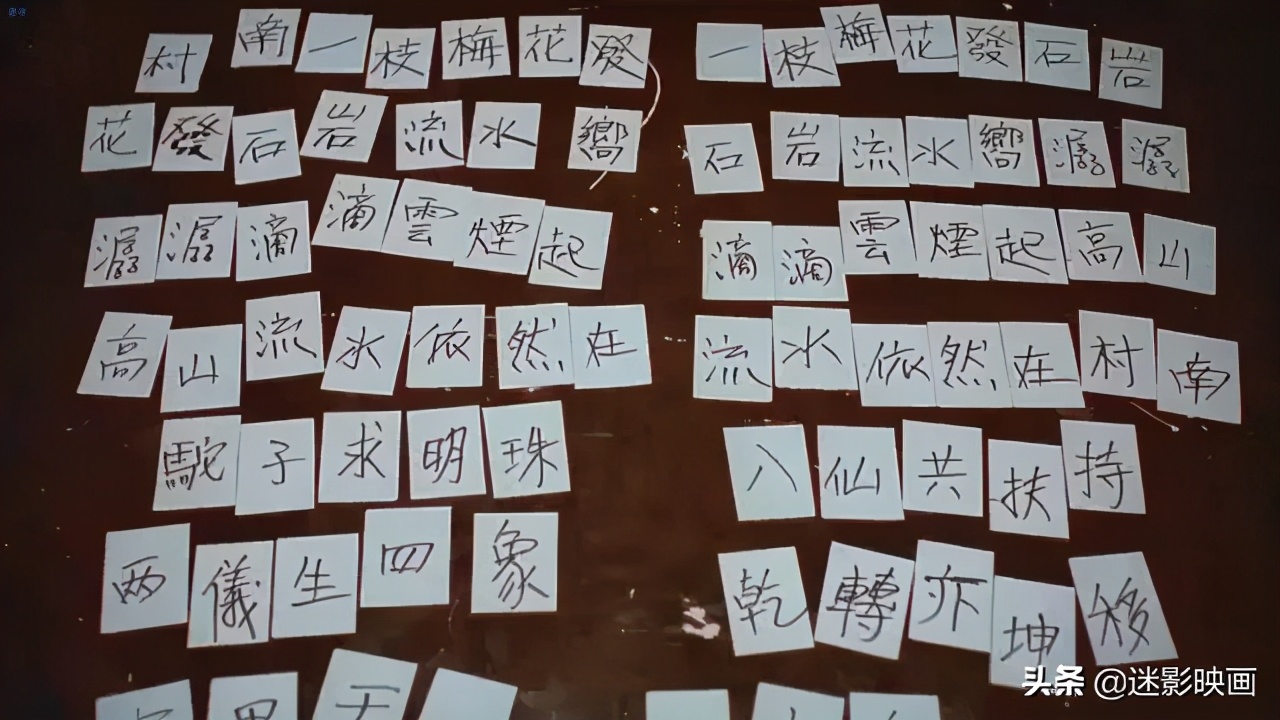 村南一枝梅花發 一枝梅花發石岩
花發石岩流水嚮 石岩流水嚮潺潺
潺潺滴滴雲煙起 滴滴雲煙起高山
高山流水依然在 流水依然在村南
子求明珠 八仙共扶持
两儀生四象 乾轉亦坤移
头条 @迷影映画